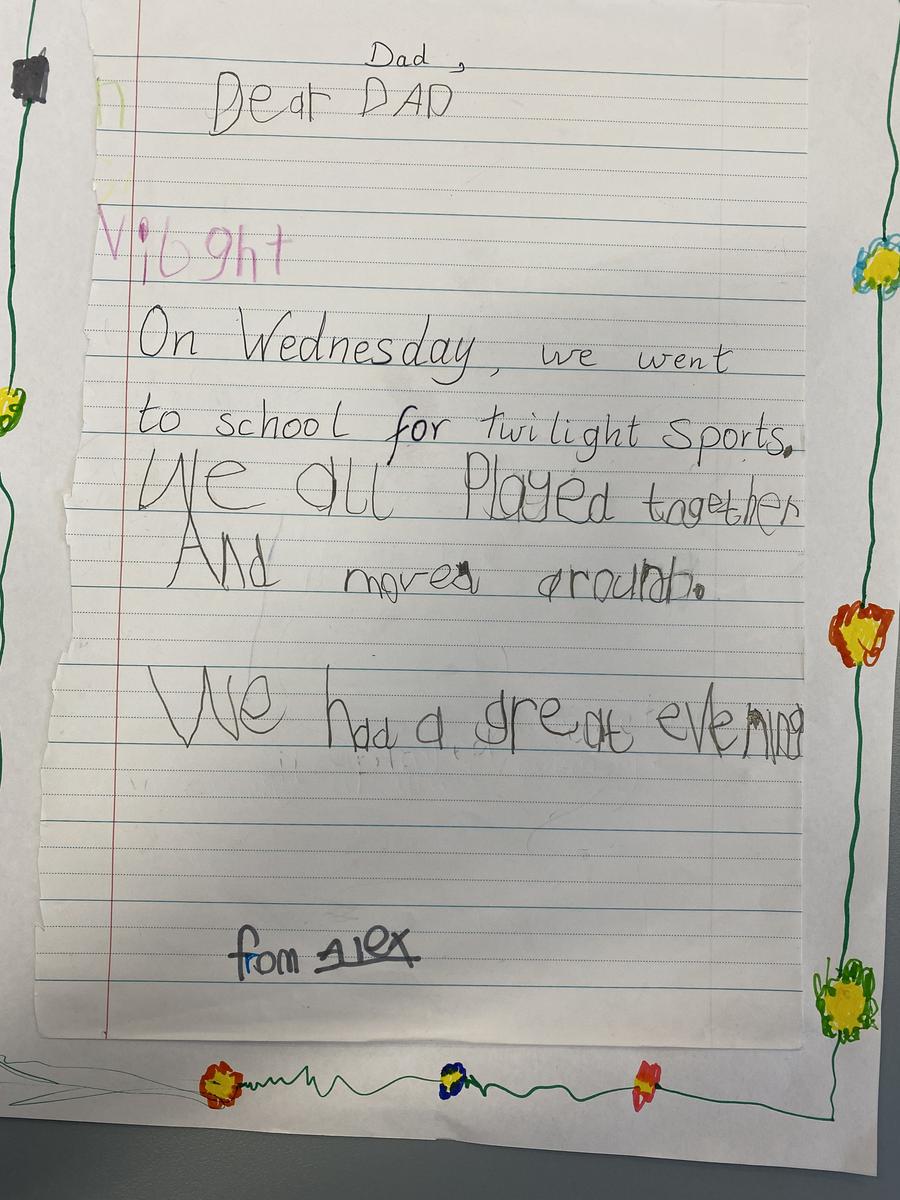 Dad,
Dear DAD
n
Vibght
On Wednesday, we went
to school for twilight Sports.
We all Played together
And moved around.
We had a great evening
from Alex